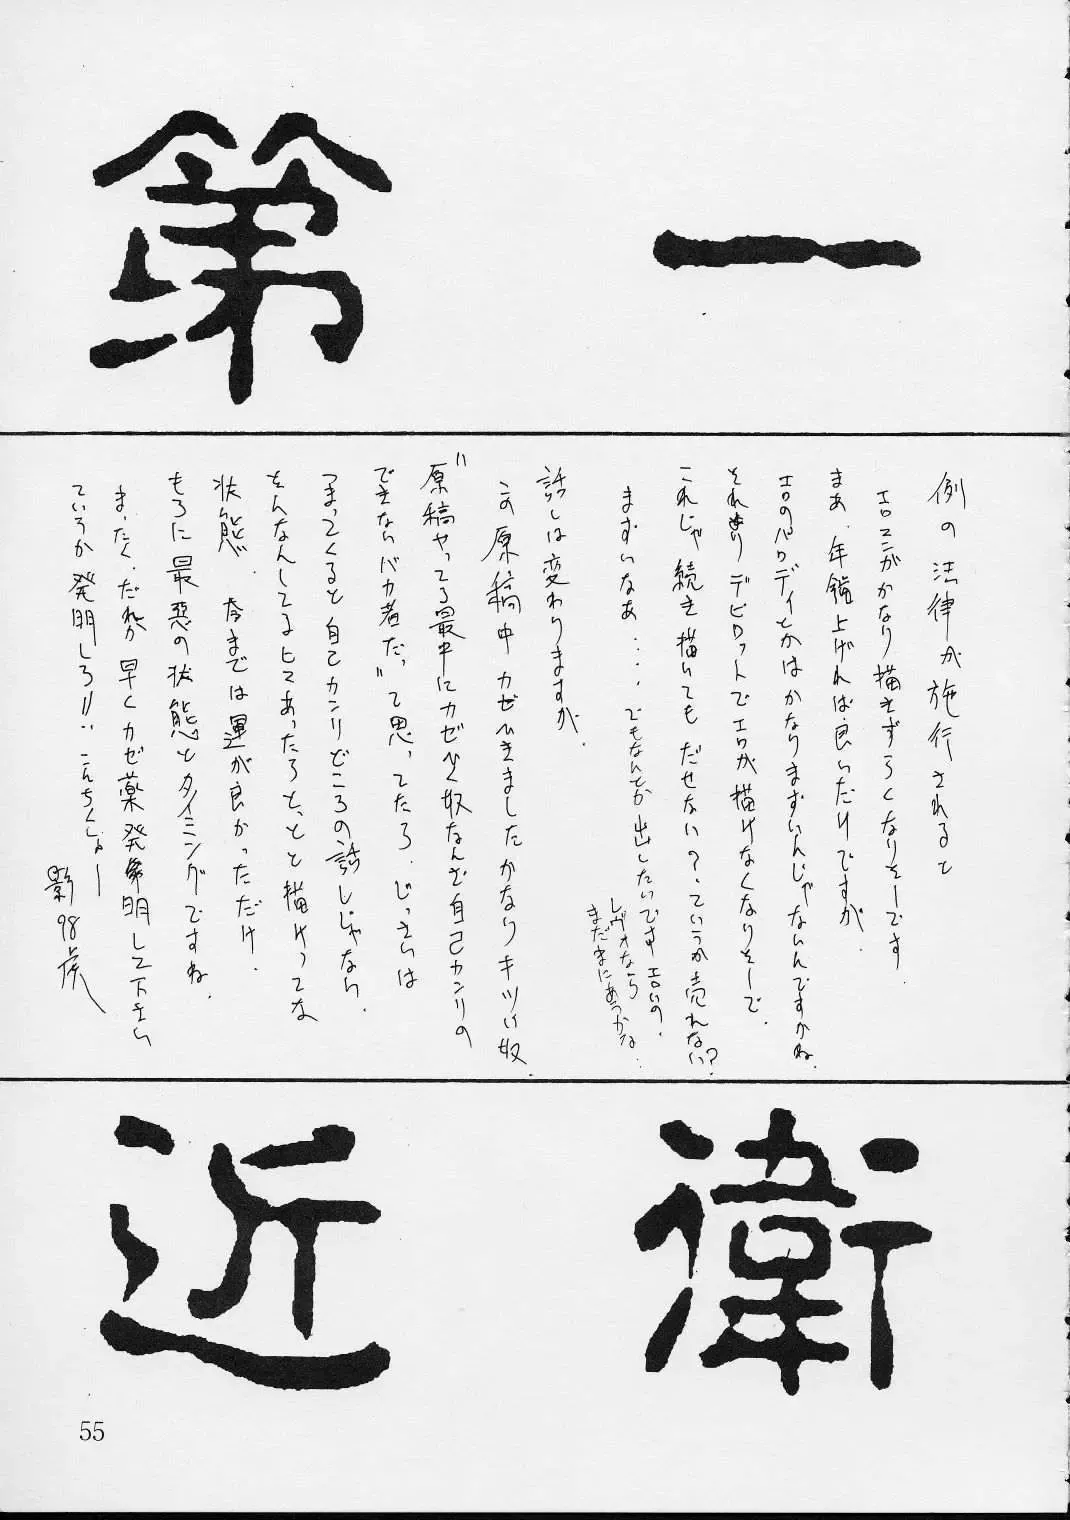 第一
例の法律が施行されると
エロマンがかなり描きずらくなりそーです
まぁ、年齢上げれば良いだけですが、
エロのパロディとかはかなりまずいんじゃないんですかね、
それよりデビロットでエロが描けなくなりそーで、
これじゃ続き描いても だせない?、ていうか売れない?
まずいなぁ・・・・でもなんとか出したいですエロいの、
レヴォなら
まだまにあうかな‥
話しは変わりますが、
この原稿中カゼひきましたかなりキツい奴
"原稿やってる最中にカゼひく奴なんざ自己カンリの
できないバカ者だっ"て思ってたら、じっさいは
つまってくると自己カンリどころの話しじゃない、
そんなんしてるヒマあったらとっとと描けってな
状態、今までは運が良かっただけ、
もろに最悪の状態とタイミングですね、
まったく、だれか早くカゼ薬発明して下さい
ていうか発明しろ!!‥こんちくしょー
影98
近衛
55